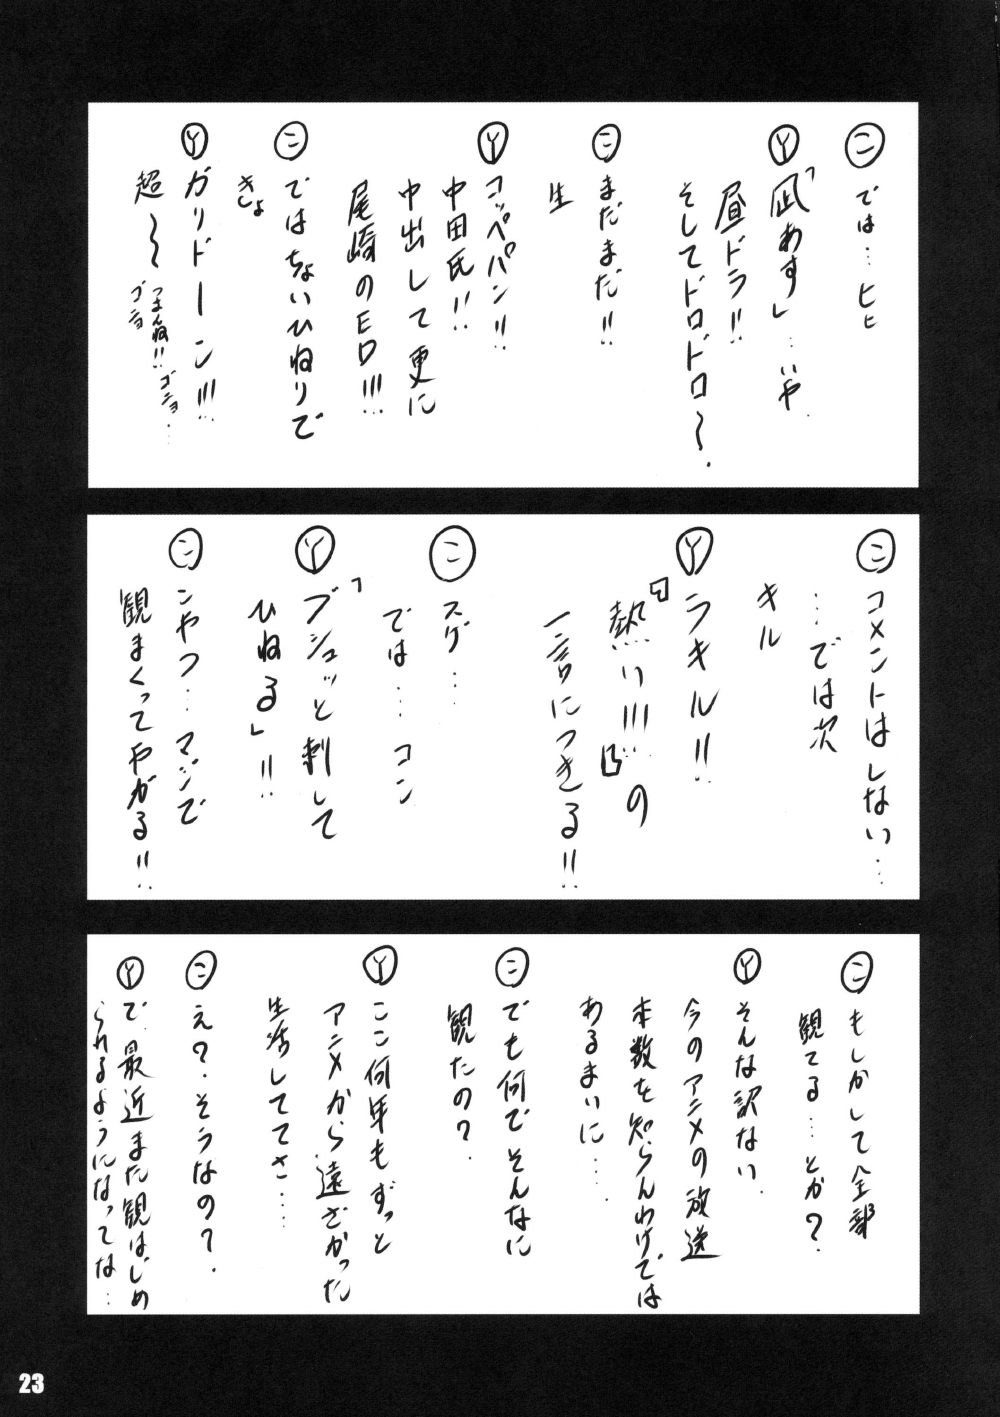 ㋙ では…ヒヒ
Ⓨ「凪あす」…いや
昼ドラ!!
そしてドロドロ〜.
㋙ まだまだ!!
生
Ⓨ コッペパン!!
中田氏!!
中出しして更に
尾崎のED!!!
㋙ ではちょいひねりで
きしょ
Ⓨ ガリドーン!!!
超〜つまんね!!ゴニョ…
ゴニョ
㋙ コメントはしない…
…では次
キル
Ⓨ ラキル!!
『熱い!!!』の
一言につきる!!
㋙ スゲ…
では…コン
Ⓨ「ブシュッと刺して
ひねる」!!
㋙ こやつ…マジで
観まくってやがる!!
㋙ もしかして全部
観てる…とか?
Ⓨ そんな訳ない.
今のアニメの放送
本数を知らんわけでは
あるまいに…
㋙ でも何でそんなに
観たの?
Ⓨ ここ何年もずっと
アニメから遠ざかった
生活しててさ…
㋙ え?そうなの?
Ⓨ で、最近また観はじめ
られるようになってな…
23